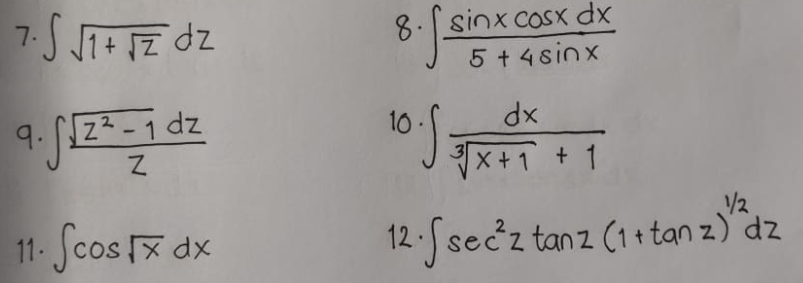 7. ∫ √(1 + √z) dz
8. ∫ (sinx cosx dx)/(5 + 4 sinx)
9. ∫ (√(z² - 1) dz)/z
10. ∫ dx/(∛(x + 1) + 1)
11. ∫ cos √x dx
12. ∫ sec²z tanz (1 + tan z)^1/2 dz